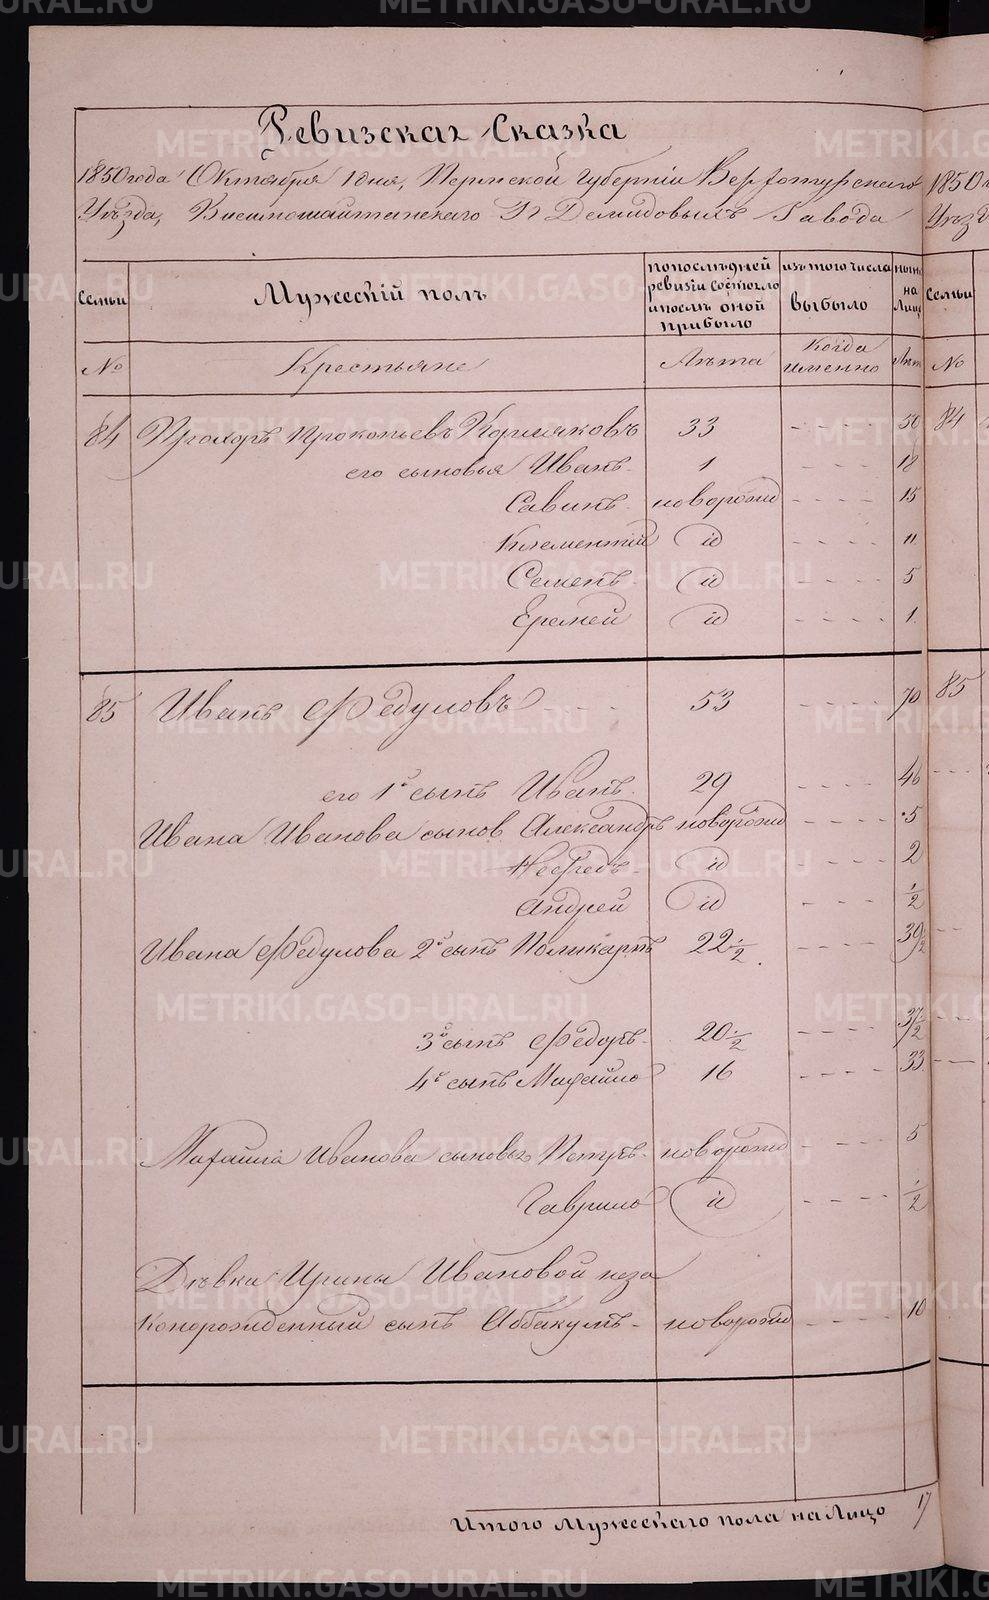 Ревизская Сказка
1850 года Октября 1 дня, Пермской Губерніи Верхотурскаго
Уѣзда, Висимошайтанскаго Гг Демидовыхъ Завода
Семьи
Мужескій полъ
по послѣдней ревизіи состояло и послѣ оной прибыло
изъ того числа выбыло
нынѣ на Лицо
№
Крестьяне
Лѣта
Когда именно
Лѣта
84 Прохоръ Прокопьевъ Корляковъ 33 - - - - 50
его сыновья Иванъ 1 - - - 18
Савинъ новорожд - - - - 15
Клементій id - - - - 11
Семенъ id - - - - 5
Еремей id - - - - 1
85 Иванъ Федуловъ - - - - 53 - - - - 70
его 1й сынъ Иванъ 29 - - - - 46
Ивана Иванова сынов Александръ новорожд - - - - 5
Мефедъ id - - - - 2
Андрей id - - - - 1/2
Ивана Федулова 2й сынъ Поликарпъ 22 1/2 - - - - 39 1/2
3й сынъ Федоръ 20 1/2 - - - - 37 1/2
4й сынъ Михайло 16 - - - - 33
Михайла Иванова сыновья Петръ новорожд - - - - 5
Гаврило id - - - - 1/2
Дѣвки Ирины Ивановой неза
конорожденный сынъ Аббакумъ новорожд - - - - 10
Итого Мужескаго пола на Лицо 17
1850
Уѣзд
Семьи
№
84
85
METRIKI.GASO-URAL.RU